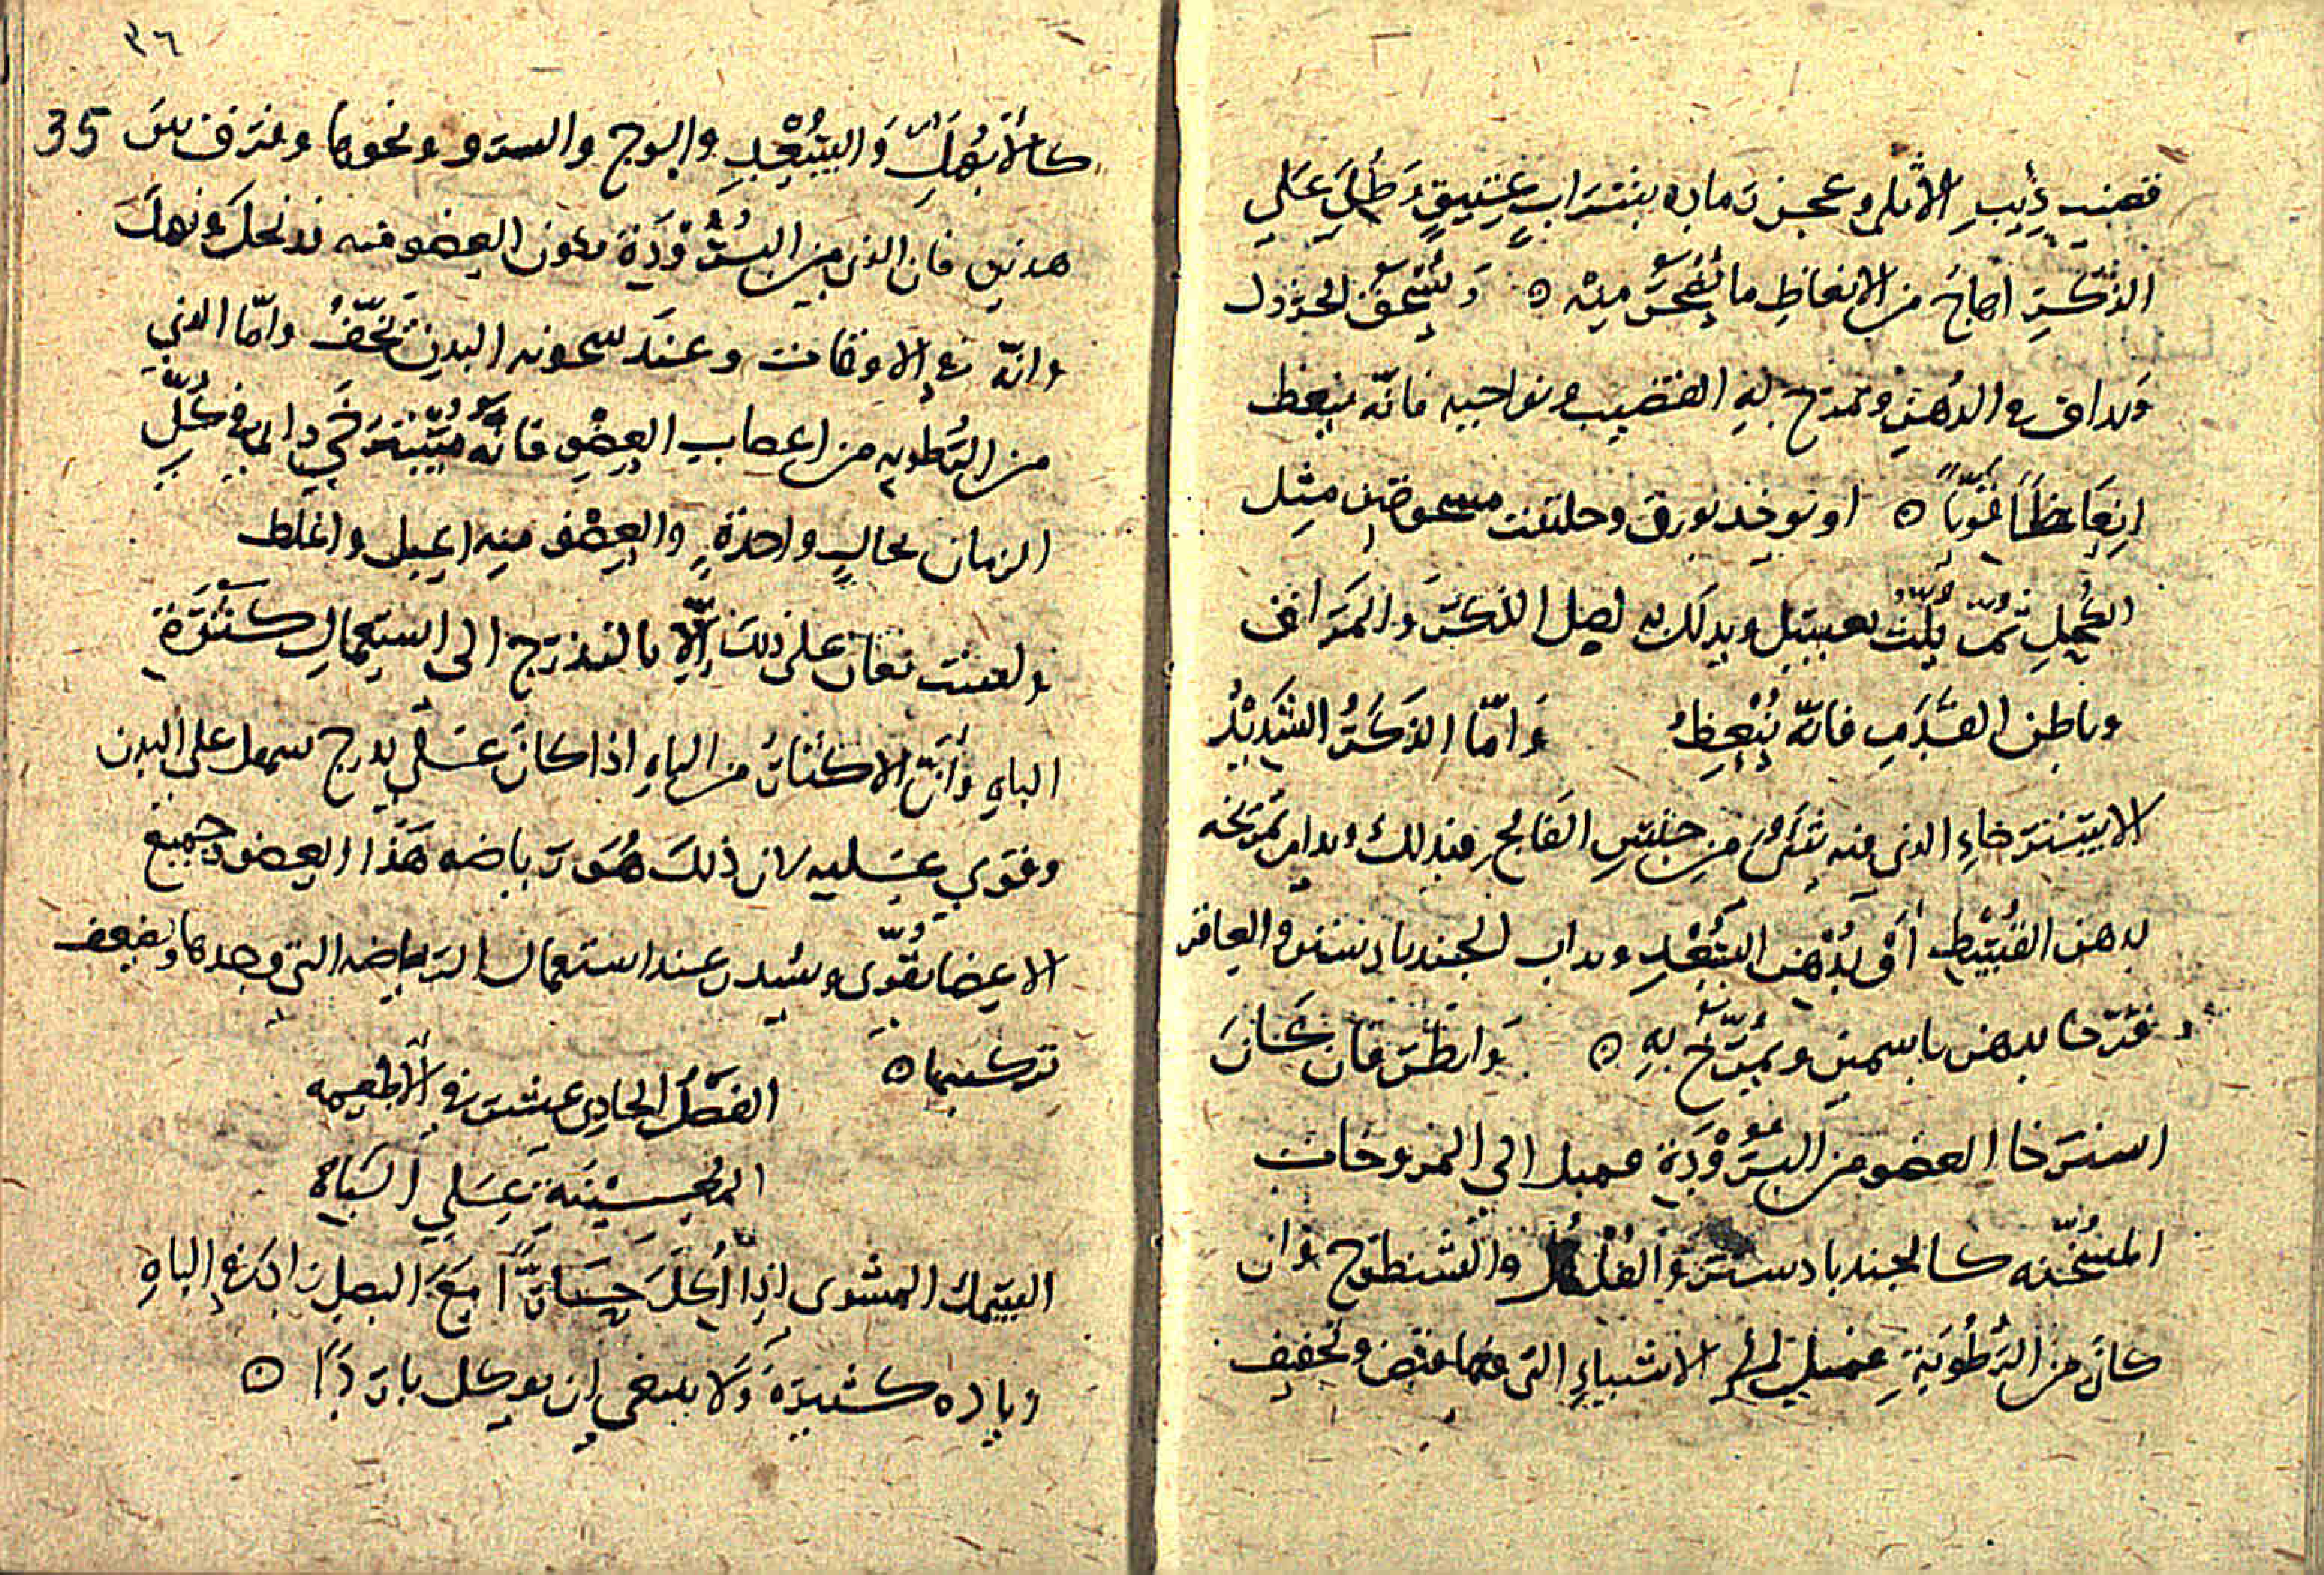 قضيب ذيب الايل وعجن رماده بشراب عتيق وطلي علي
الذكر اهاج من الانعاظ ما يضجر منه ه ويسحق الخردل
ويداف في الدهن ويمرخ به القضيب ونواحيه فانه ينعظ
انعاظا قويا ه او يوخذ بورق وحلتيت مسحوقين مثل
الكحل ثم يلت بعسل ويدلك به اصل الذكر والمراق
وباطن القدم فانه ينعظ وامّا الذكر الشديد
الاسترخاء الذي فيه شيء من جنس الفالج فيدلك ويدام تمريخه
بدهن القسط او بدهن السعد ويداب الجندبادستر والعاقر
قرحا بدهن ياسمين ويمرّخ به ه وانظر فان كان
استرخا العضو من البرودة فمل الي المروخات
المسخّنه كالجندبادستر والفلفل والشيطرج وان
كان من الرطوبة فمل الي الاشياء التي فيها قبض وتجفيف
٣٦
35
كالابهل والسعد والوج والسرو ونحوها وفرّق بين
هذين فان الذي من البرودة يكون العضو منه قد نحل ونهك
وانّه في الاوقات وعند سخونه البدن يخفّ وامّا الذي
من الرطوبه من اعصاب العضو فانّه مسترخي دايم في كلّ
الزمان بحال واحدة والعضو منه اعبل واغلظ
وليست تعان علي ذلك الّا بالتدرّج الى استعمال كثرة
الباه وانّ الاكثار من الباه اذا كان علي تدرج سهل علي البدن
وقوي عليه لان ذلك هو رياضه هذا العضو وجميع
الاعضا تقوّى وتشتد عند استعمال الرياضه التي وحدها وتضعف
تركها ه
الفصل الحادي عشر في الاطعمه
المحسّنة علي الباه
السمك المشوى اذا اكل حارّا مع البصل زاد في الباه
زياده كثيرة ولا ينبغي ان يوكل باردا ه